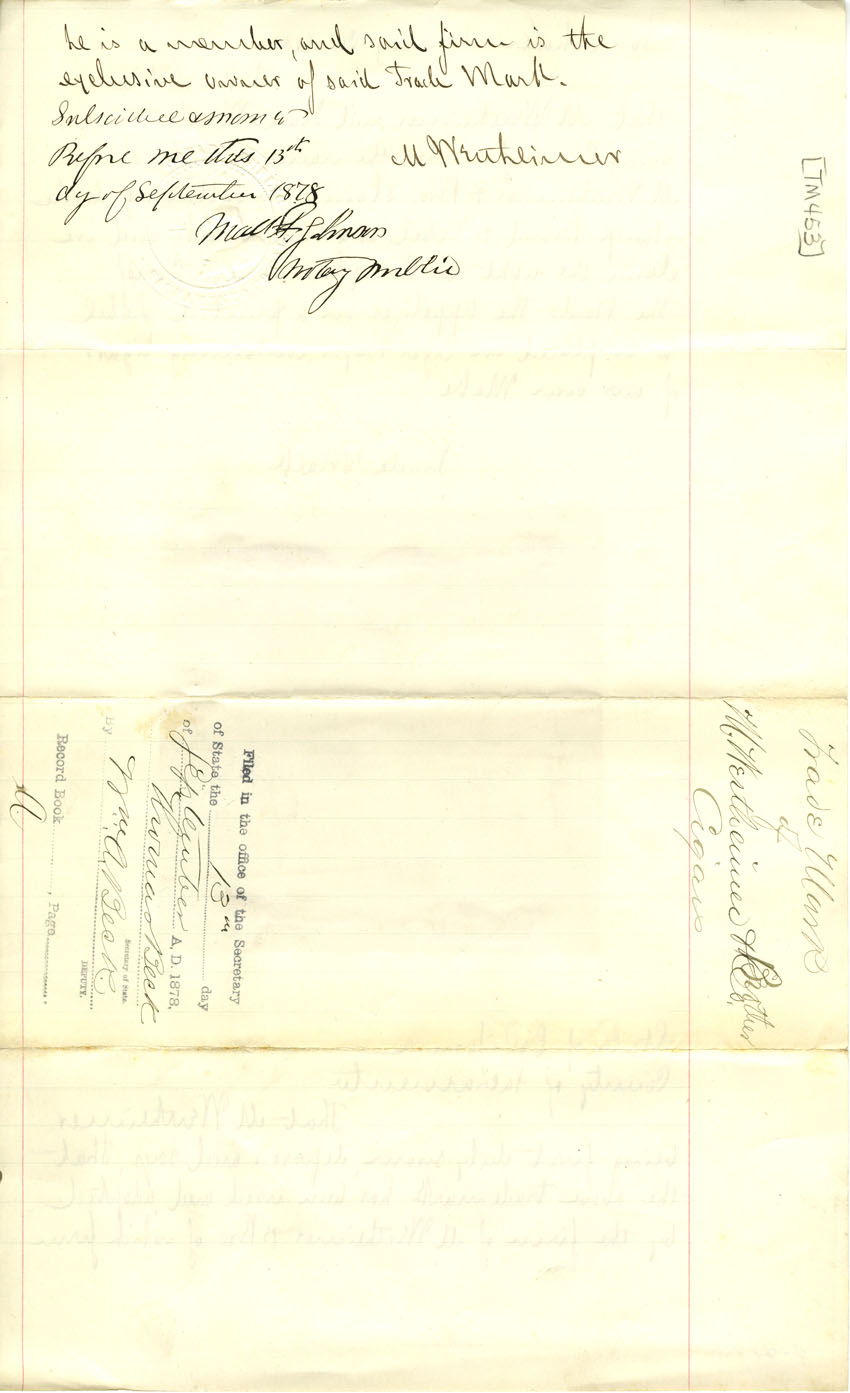 he is a member, and said firm is the
exclusive owner of said Trade Mark.
Subscribed & sworn to
Before me this 13th
day of September 1878
M Wertheimer
Johnson
Notary Public
[TM453]
Trade Mark
of
M. Wertheimer & Brother
Cigars
Filed in the office of the Secretary
of State the 13th day
of September A. D. 1878,
Thomas Beck
Secretary of State.
By Wm. A. Beck
DEPUTY.
Record Book , Page